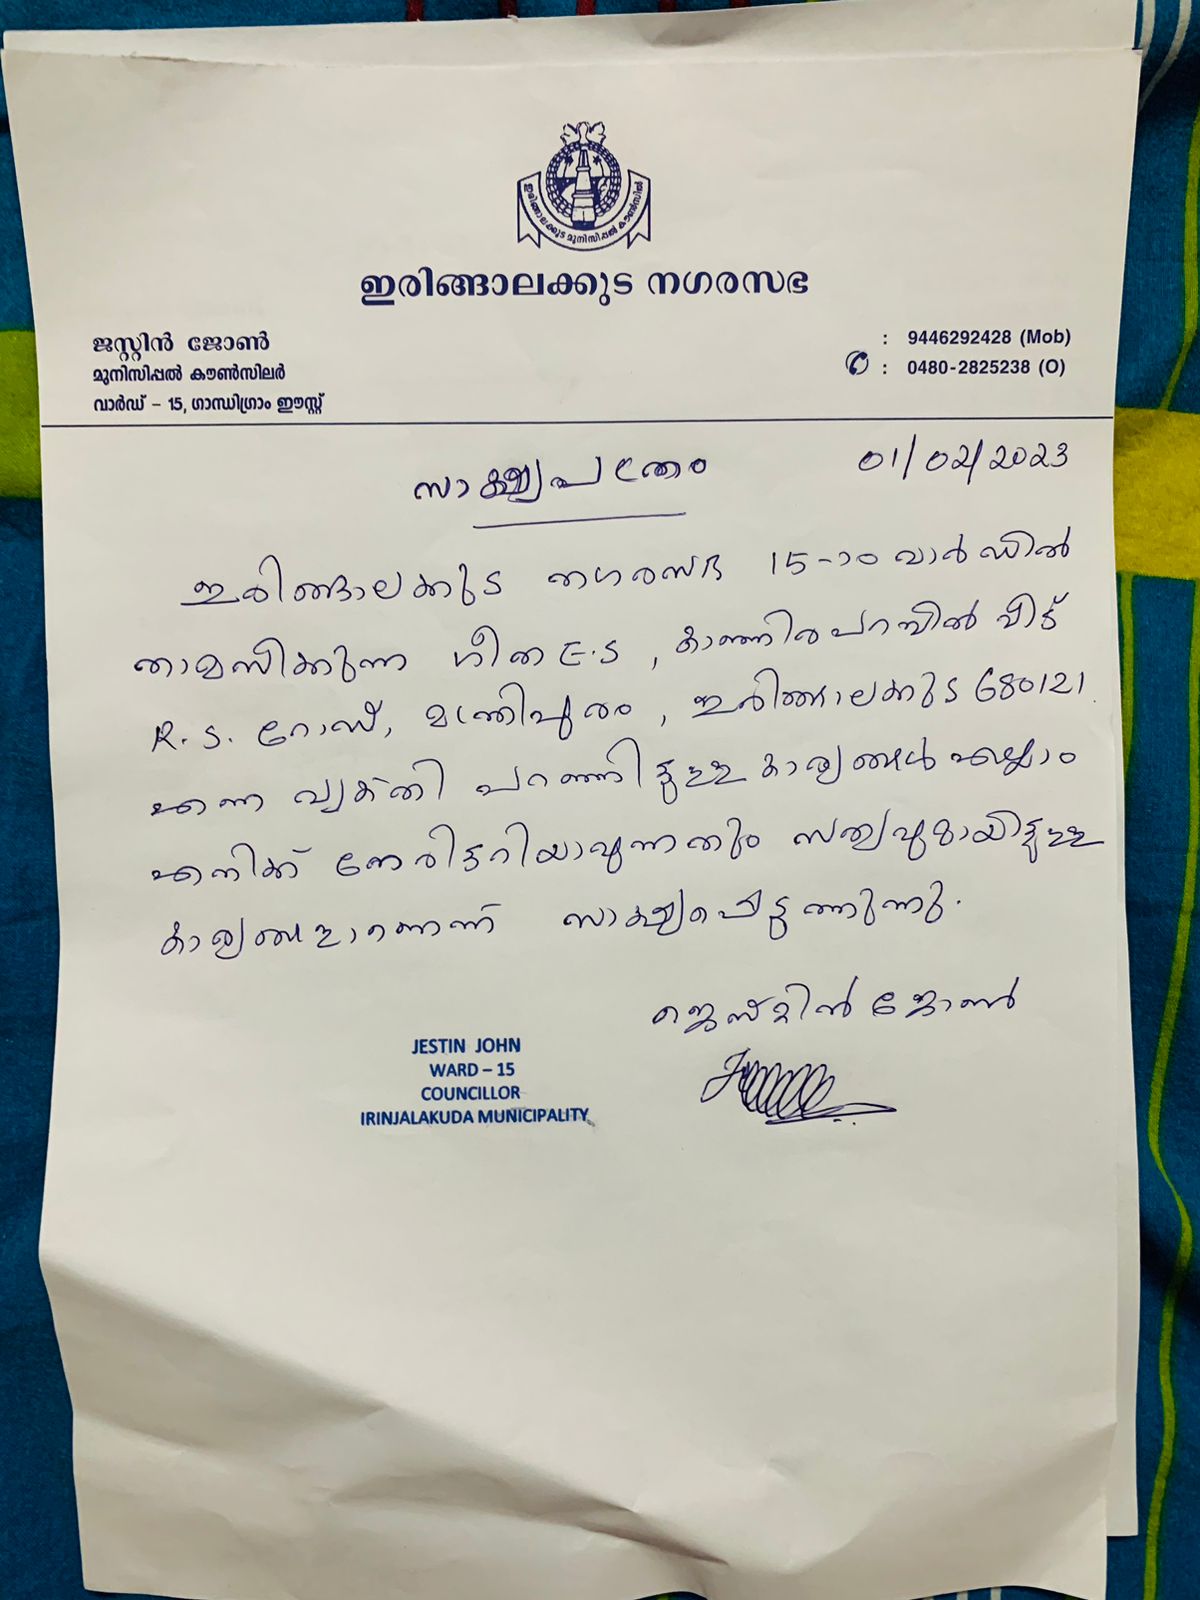 ഇരിങ്ങാലക്കുട മുനിസിപ്പൽ കൗൺസിൽ
ഇരിങ്ങാലക്കുട നഗരസഭ
ജസ്റ്റിൻ ജോൺ
മുനിസിപ്പൽ കൗൺസിലർ
വാർഡ് – 15, ഗാന്ധിഗ്രാം ഈസ്റ്റ്
: 9446292428 (Mob)
: 0480-2825238 (O)
സാക്ഷ്യപത്രം 01/02/2023
ഇരിങ്ങാലക്കുട നഗരസഭ 15-ാം വാർഡിൽ
താമസിക്കുന്ന ഗീത E.S, കാഞ്ഞിരപറമ്പിൽ വീട്
R.S. റോഡ്, മന്ത്രിപുരം, ഇരിങ്ങാലക്കുട 680121
എന്ന വ്യക്തി പറഞ്ഞിട്ടുള്ള കാര്യങ്ങൾ എല്ലാം
എനിക്ക് നേരിട്ടറിയാവുന്നതും സത്യവുമായിട്ടുള്ള
കാര്യങ്ങളാണെന്ന് സാക്ഷ്യപ്പെടുത്തുന്നു.
ജോൺ
JESTIN JOHN
WARD – 15
COUNCILLOR
IRINJALAKUDA MUNICIPALITY